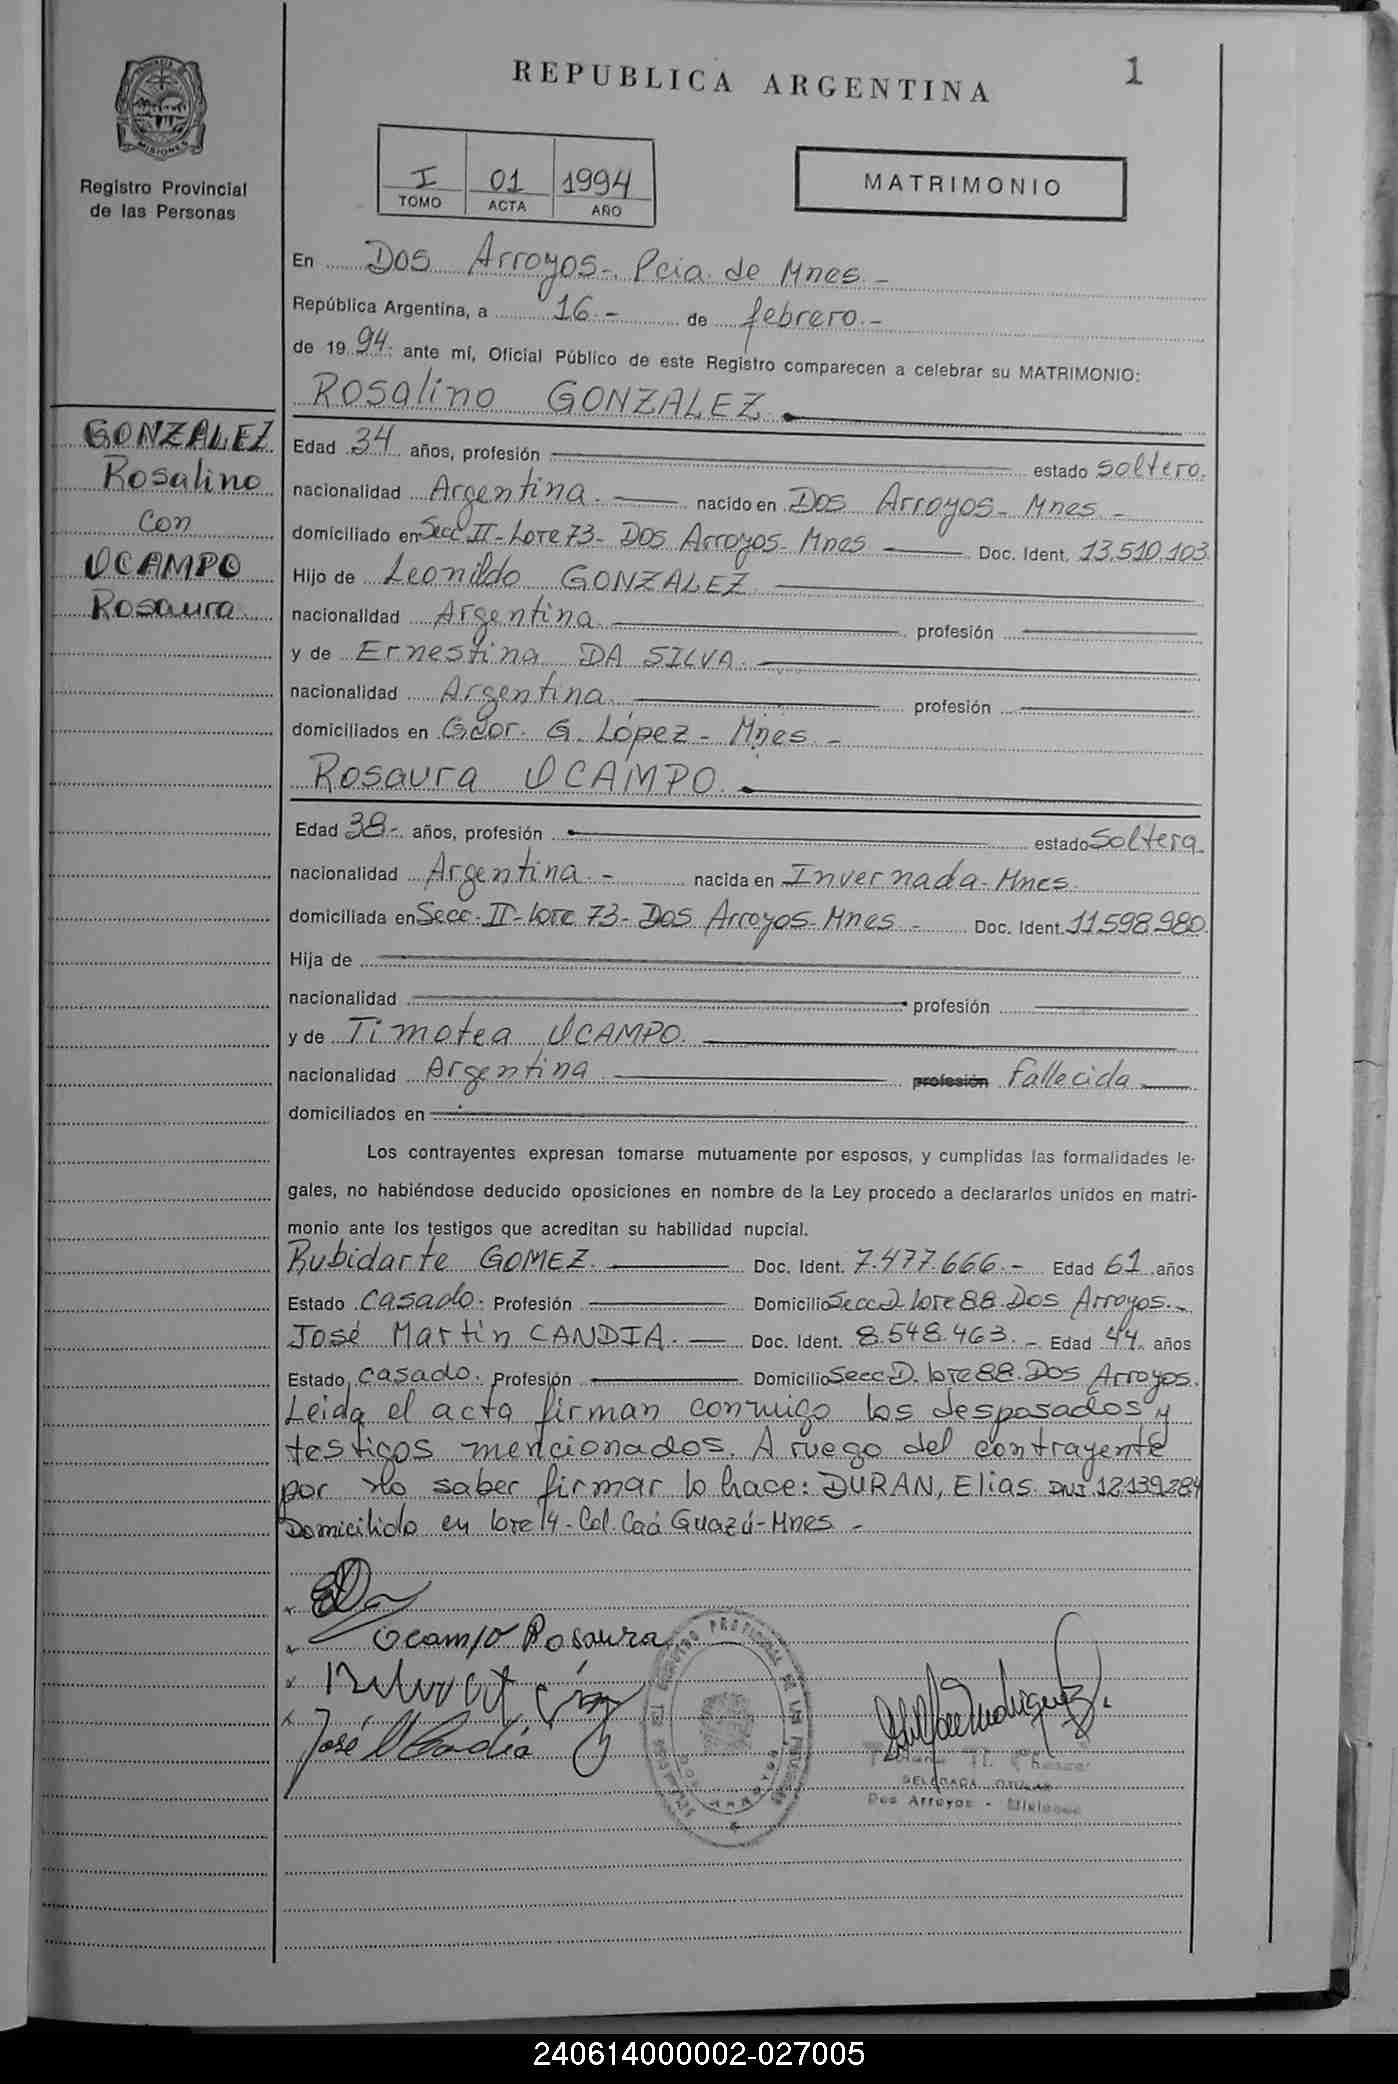 REPUBLICA ARGENTINA
1
PROVINCIA DE
MISIONES
Registro Provincial
de las Personas
I 01 1994
TOMO ACTA AÑO
MATRIMONIO
En Dos Arroyos-. Pcia. de Mnes.-
República Argentina, a 16.- de febrero.-
de 1994. ante mí, Oficial Público de este Registro comparecen a celebrar su MATRIMONIO:
Rosalino GONZALEZ.
GONZALEZ
Rosalino
con
OCAMPO
Rosaura.
Edad 34 años, profesión estado soltero.
nacionalidad Argentina. nacido en Dos Arroyos- Mnes-
domiciliado en Secc II- Lote 73- Dos Arroyos- Mnes Doc. Ident. 13.510.103
Hijo de Leonildo GONZALEZ
nacionalidad Argentina. profesión
y de Ernestina DA SILVA.
nacionalidad Argentina. profesión
domiciliados en Gdor. G. López- Mnes.-
Rosaura OCAMPO.
Edad 38-. años, profesión estado Soltera.
nacionalidad Argentina.- nacida en Invernada-Mnes.
domiciliada en Secc- II- Lote 73- Dos Arroyos- Mnes- Doc. Ident. 11.598.980
Hija de
nacionalidad profesión
y de Timotea OCAMPO.
nacionalidad Argentina profesión fallecida
domiciliados en
Los contrayentes expresan tomarse mutuamente por esposos, y cumplidas las formalidades le-
gales, no habiéndose deducido oposiciones en nombre de la Ley procedo a declararlos unidos en matri-
monio ante los testigos que acreditan su habilidad nupcial.
Rubidarte GOMEZ. Doc. Ident. 7.477.666.- Edad 61 años
Estado casado. Profesión Domicilio Secc D. Lote 88. Dos Arroyos.-
José Martin CANDIA. Doc. Ident. 8.548.463.- Edad 44. años
Estado casado. Profesión Domicilio Secc D. lote 88. Dos Arroyos.
Leida el acta firman conmigo los desposados y
testigos mencionados. A ruego del contrayente
por no saber firmar lo hace: DURAN, Elias DNI 12.139.284
Domicilido en lote 14- Col. Caá Guazú-Mnes-
Ocampo Rosaura
José M Candia
DELEGADA TITULAR
Dos Arroyos - Misiones
240614000002-027005